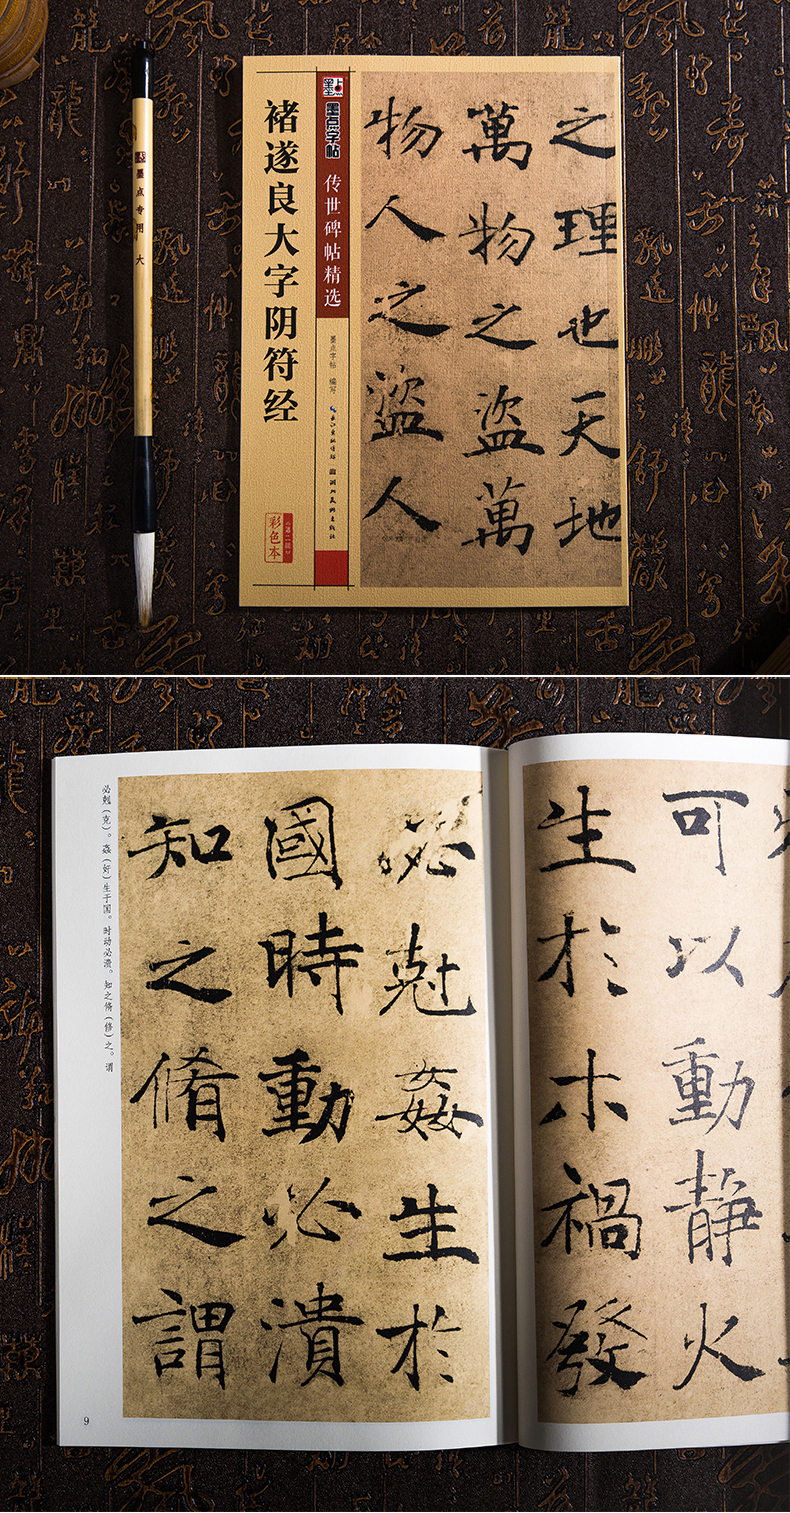 墨点专用 大
褚遂良大字阴符经
墨点字帖
传世碑帖精选
墨点字帖 编写
长江出版传媒 湖北美术出版社
彩色本
（第二辑）
之理也天地
萬物之盜萬
物人之盜人
可以動靜火
生於木禍發
必尅姦生於
國時動必潰
知之脩之謂
必尅（克）。姦（奸）生于国。时动必溃。知之脩（修）之。谓
9